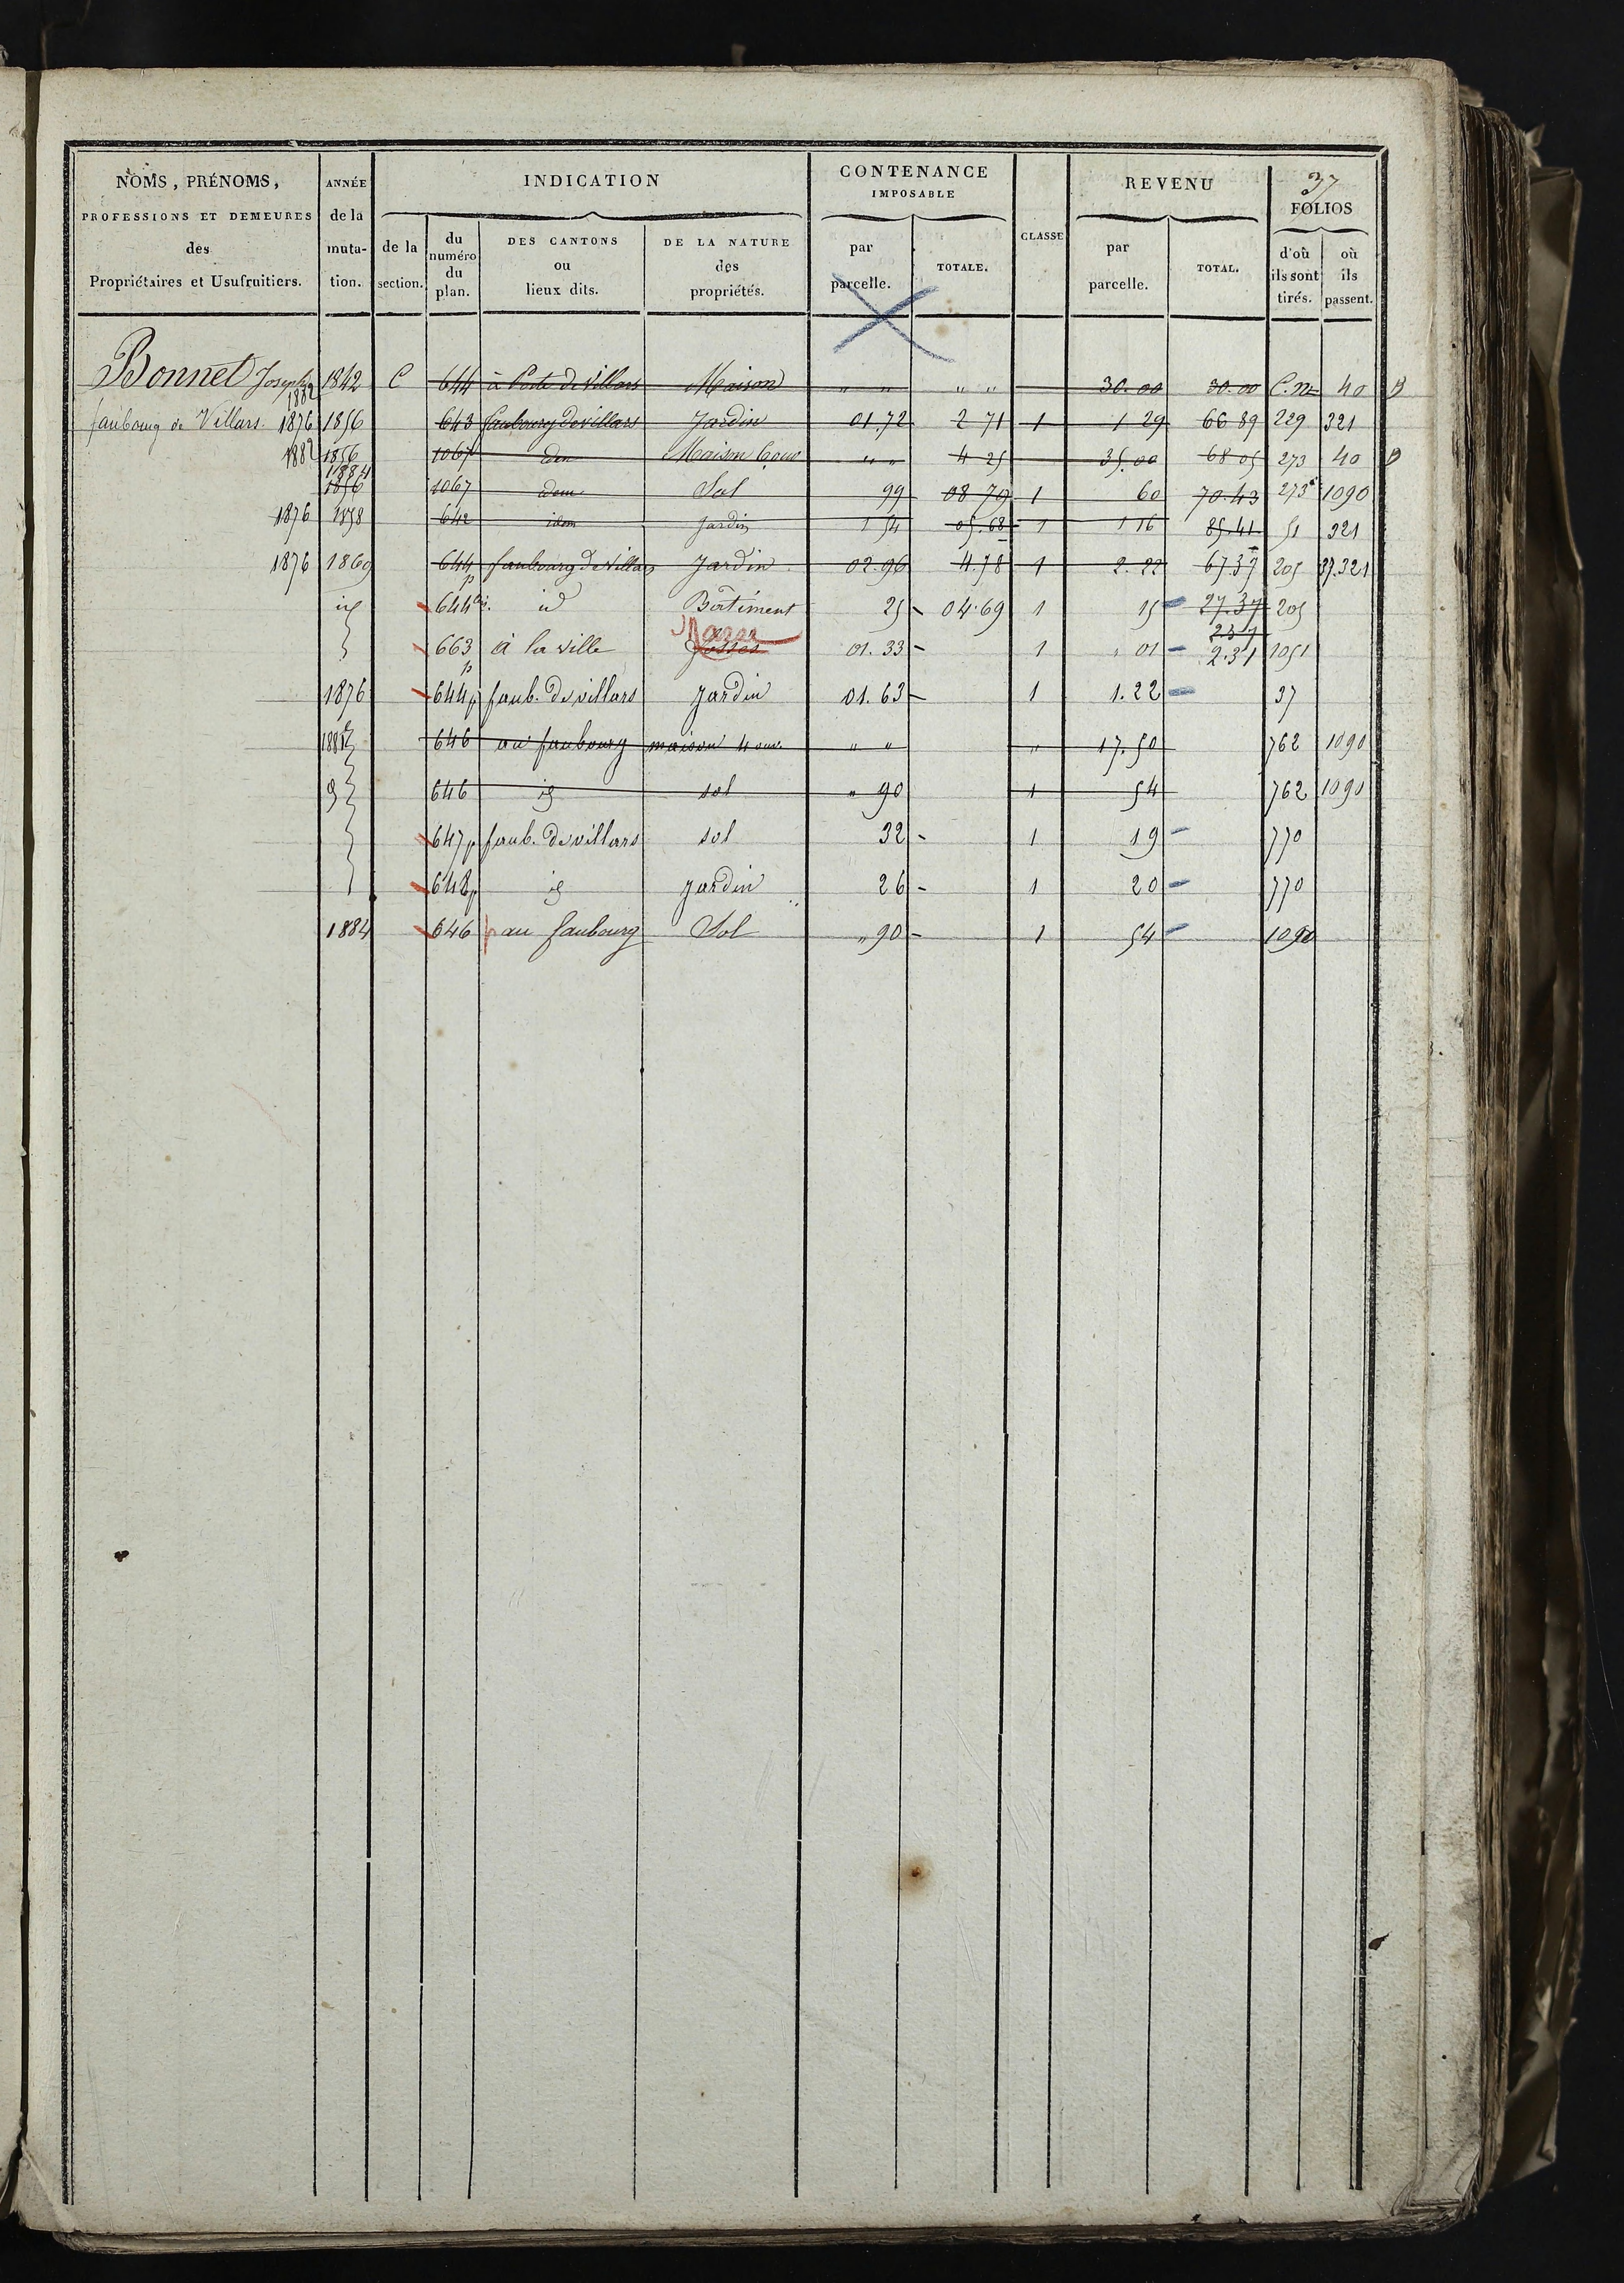 37
NOMS, PRÉNOMS,
PROFESSIONS ET DEMEURES
des
Propriétaires et Usufruitiers.
ANNÉE
de la
muta-
tion.
INDICATION
de la
section.
du
numéro
du
plan.
DES CANTONS
ou
lieux dits.
DE LA NATURE
des
propriétés.
CONTENANCE
IMPOSABLE
par
parcelle.
TOTALE.
CLASSE
REVENU
par
parcelle.
TOTAL.
FOLIOS
d'où
ils sont
tirés.
où
ils
passent.
Bonnet Joseph 1882 1842 C 644 à Porte de Villars Maison " " " " 30.00 30.00 C.m 40 B
faubourg de Villars. 1876 1856 643 faubourg de villars Jardin 01.72 2 71 1 1 29 66 89 229 321
1882 1856 1067 idem Maison " " 4 25 35.00 68 05 273 40 B
1884 1856 1067 idem Sol 99 08 79 1 60 70.43 273 1090
1876 1858 642 idem Jardin 1 54 05.68 1 1 16 85.41 51 321
1876 1869 644 p faubourg de Villars Jardin 02.96 4.78 1 2.22 67.37 205 37.321
id 644 bis. id Bâtiment 25 - 04.69 1 15 - 27.37 205
2.37
663 p à la ville fosses 01.33 - 1 " 01 - 2.31 1051
1876 644 p faub. de villars Jardin 01.63 - 1 1.22 - 37
1882 646 au faubourg maison 4 ouv. " " " 17.50 762 1090
646 id sol " 90 1 54 762 1090
647 p faub. de villars sol 32 - 1 19 - 770
648 p id Jardin 26 - 1 20 - 770
1884 646 p au faubourg Sol " 90 - 1 54 - 1090